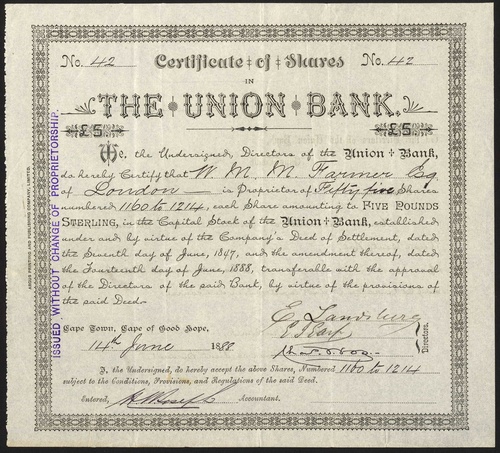 No. 42 Certificate of Shares No. 42
IN
THE UNION BANK.
£5 £5
We, the Undersigned, Directors of the Union Bank,
do hereby Certify that W. M. M. Farmer Esq.
of London is Proprietor of Fifty five Shares
numbered 1160 to 1214, each Share amounting to FIVE POUNDS
STERLING, in the Capital Stock of the Union Bank, established
under and by virtue of the Company's Deed of Settlement, dated
the Seventh day of June, 1847, and the amendment thereof, dated
the Fourteenth day of June, 1888, transferable with the approval
of the Directors of the said Bank, by virtue of the provisions of
the said Deed.
Cape Town, Cape of Good Hope,
14th June 1888
E. Landsberg
Directors.
I, the Undersigned, do hereby accept the above Shares, Numbered 1160 to 1214
subject to the Conditions, Provisions, and Regulations of the said Deed.
Entered, Accountant.
ISSUED WITHOUT CHANGE OF PROPRIETORSHIP.